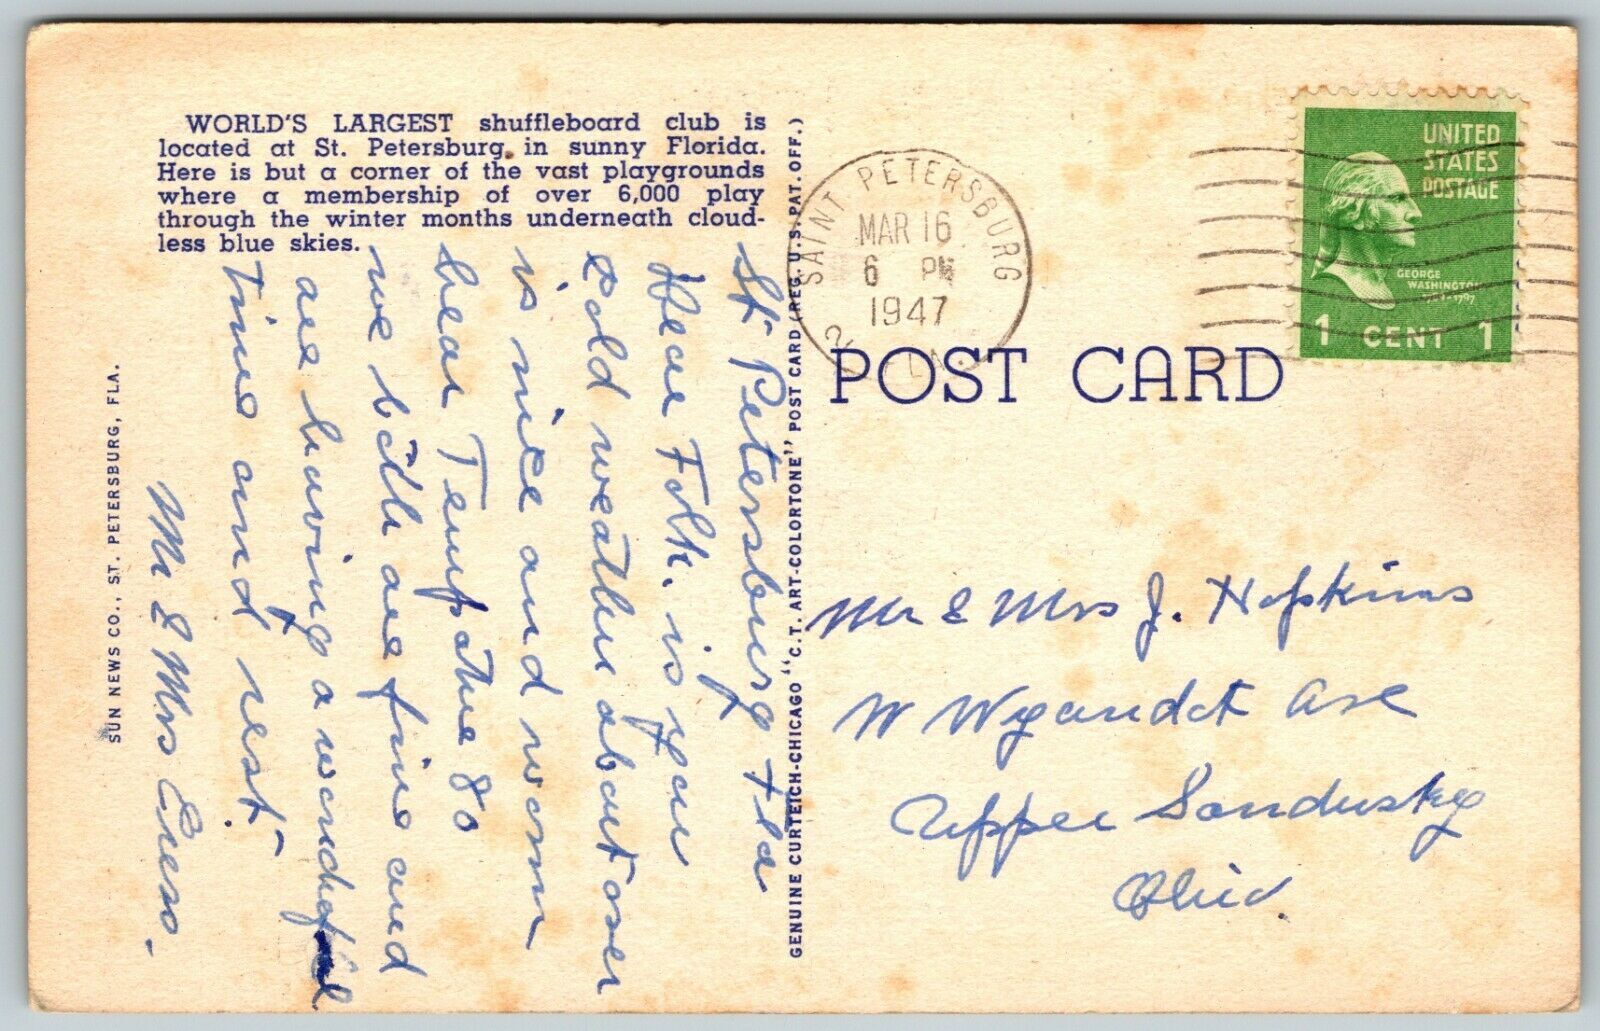 WORLD'S LARGEST shuffleboard club is
located at St. Petersburg, in sunny Florida.
Here is but a corner of the vast playgrounds
where a membership of over 6,000 play
through the winter months underneath cloud-
less blue skies.
St Petersburg Fla
Dear Folk. is your
cold weather about over
is nice and warm
hear Temp the 80
we both are fine and
are having a wonderful
time and rest
Mr & Mrs
SUN NEWS CO., ST. PETERSBURG, FLA.
GENUINE CURTEICH-CHICAGO "C.T. ART-COLORTONE" POST CARD (REG. U.S. PAT. OFF.)
SAINT PETERSBURG
MAR 16
6 PM
1947
2 FLA.
UNITED
STATES
POSTAGE
GEORGE
WASHINGTON
1 CENT 1
POST CARD
Mr & Mrs J. Hopkins
W Wyandot Ave
Upper Sandusky
Ohio.